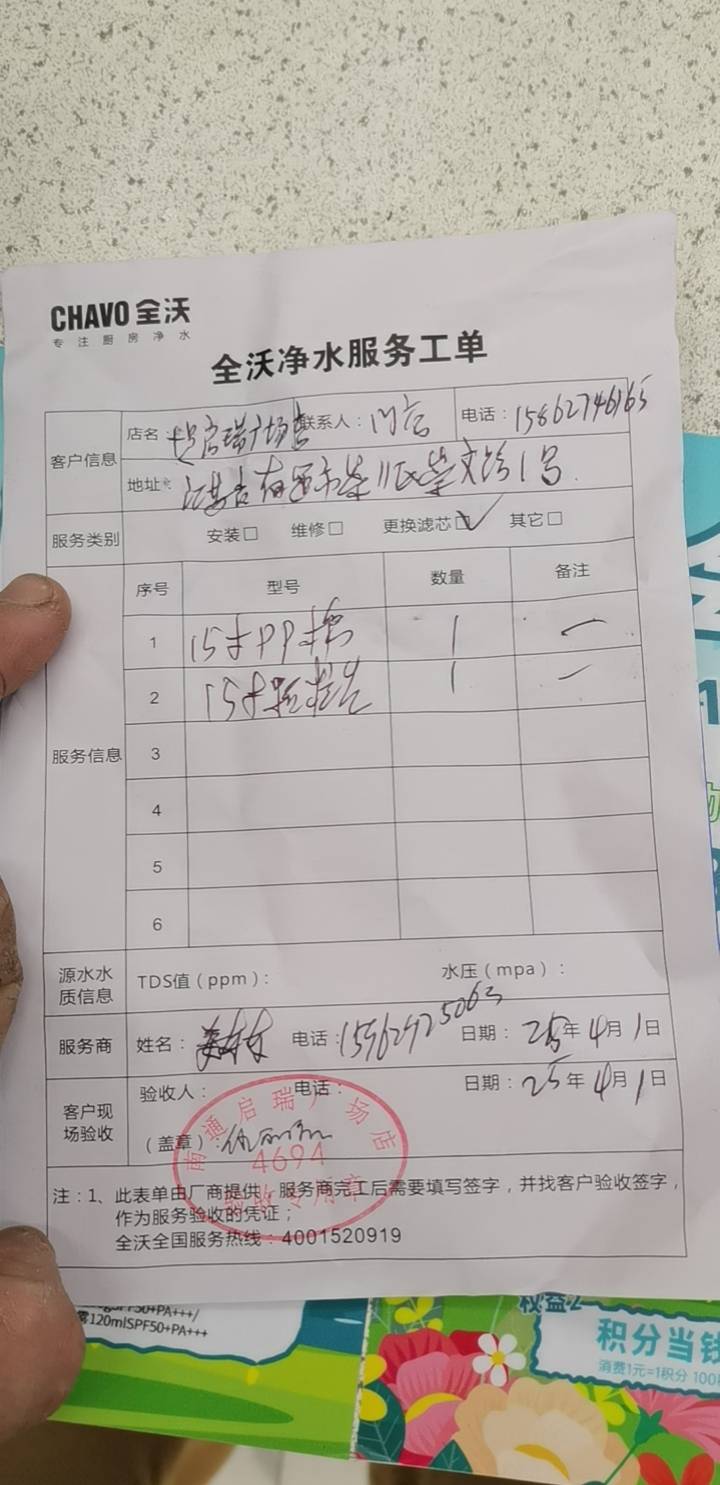 CHAVO 全沃
专注厨房净水
全沃净水服务工单
客户信息 店名： 启瑞广场店 联系人：门店 电话：15862746165
地址： 1号
服务类别 安装□ 维修□ 更换滤芯□✓ 其它□
服务信息 序号 型号 数量 备注
1 15寸PP棉 1 一
2 15寸颗粒炭 1 一
3
4
5
6
源水水质信息 TDS值（ppm）： 水压（mpa）：
服务商 姓名： 电话：15962925063 日期：25年4月1日
客户现场验收 验收人： 电话： 日期：25年4月1日
（盖章）
南通启瑞广场店
4694
验收专用章
注：1、此表单由厂商提供，服务商完工后需要填写签字，并找客户验收签字，
作为服务验收的凭证；
全沃全国服务热线：4001520919
120mlSPF50+PA+++
权益2
积分当钱
消费1元=1积分 100